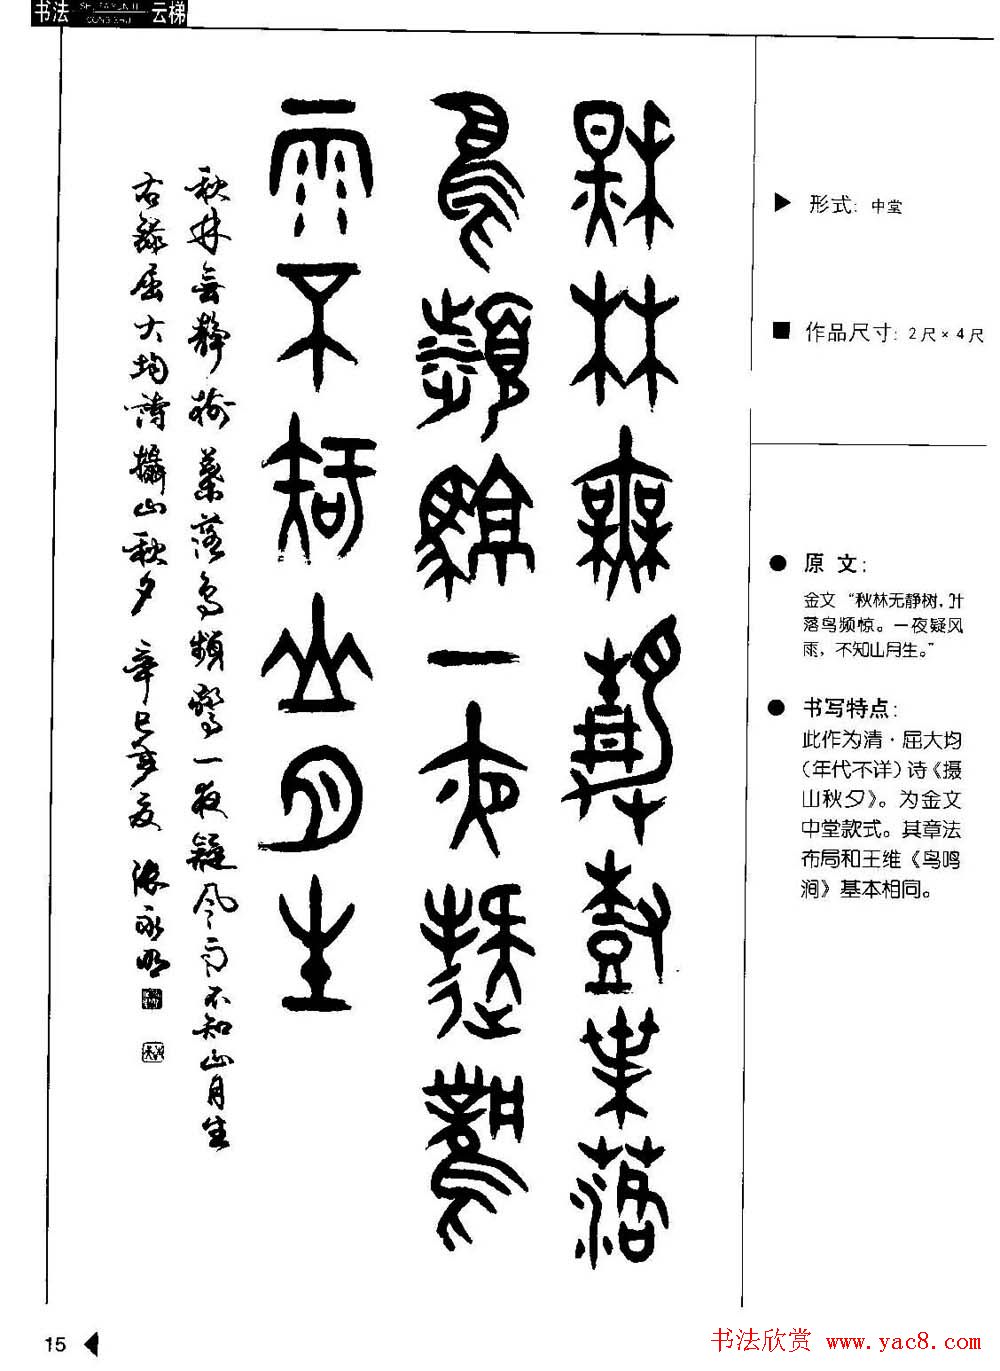 书法 云梯
秋林無靜樹葉落
鳥頻驚一夜疑風
雨不知山月生
秋林無靜樹葉落鳥頻驚一夜疑風雨不知山月生
右錄屈大均詩攝山秋夕 辛巳 夏 張永明
▶ 形式：中堂
■ 作品尺寸：2尺×4尺
● 原 文：
金文“秋林无静树，叶
落鸟频惊。一夜疑风
雨，不知山月生。”
● 书写特点：
此作为清·屈大均
（年代不详）诗《摄
山秋夕》。为金文
中堂款式。其章法
布局和王维《鸟鸣
涧》基本相同。
15
书法欣赏 www.yac8.com